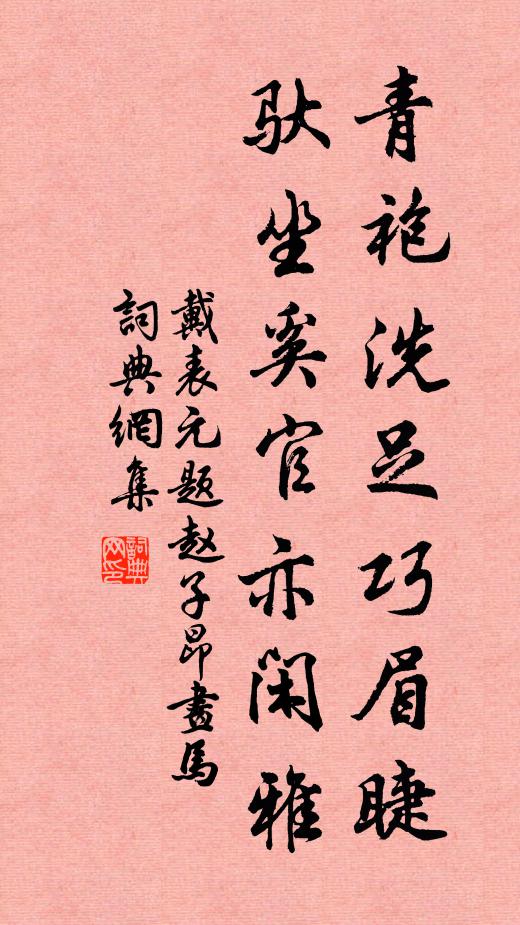 青袍洗足巧眉睫
驮坐奚官亦闲雅
戴表元题赵子昂畫馬
詞典網集
詞典网印